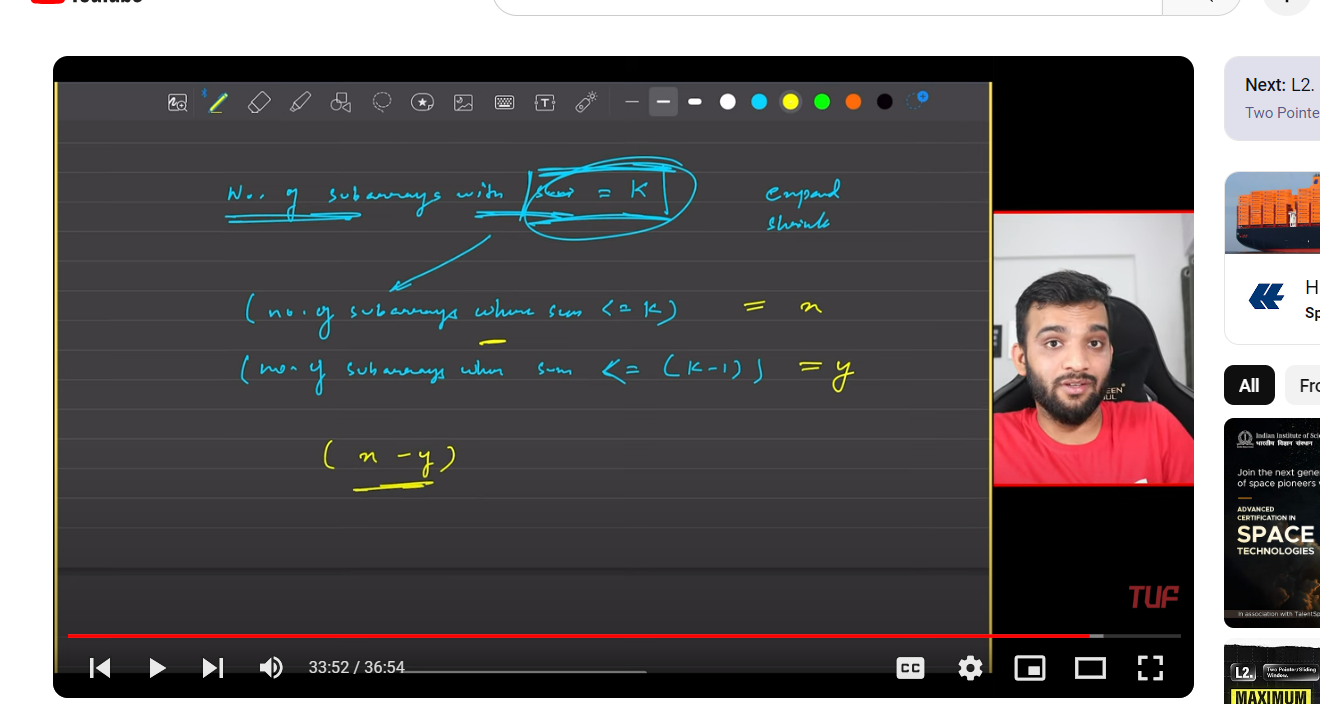 YouTube
No. of subarrays with sum = K
expand
shrink
(no. of subarrays where sum <= K) = x
(no. of subarrays where sum <= (K-1)) = y
(x - y)
TUF
33:52 / 36:54
CC
Next: L2.
Two Pointe
H
Sp
All
Fro
Indian Institute of Sci
भारतीय विज्ञान संस्थान
Join the next gene
of space pioneers
ADVANCED
CERTIFICATION IN
SPACE
TECHNOLOGIES
In association with TalentSp
L2.
Two Pointer/Sliding
Window.
MAXIMUM